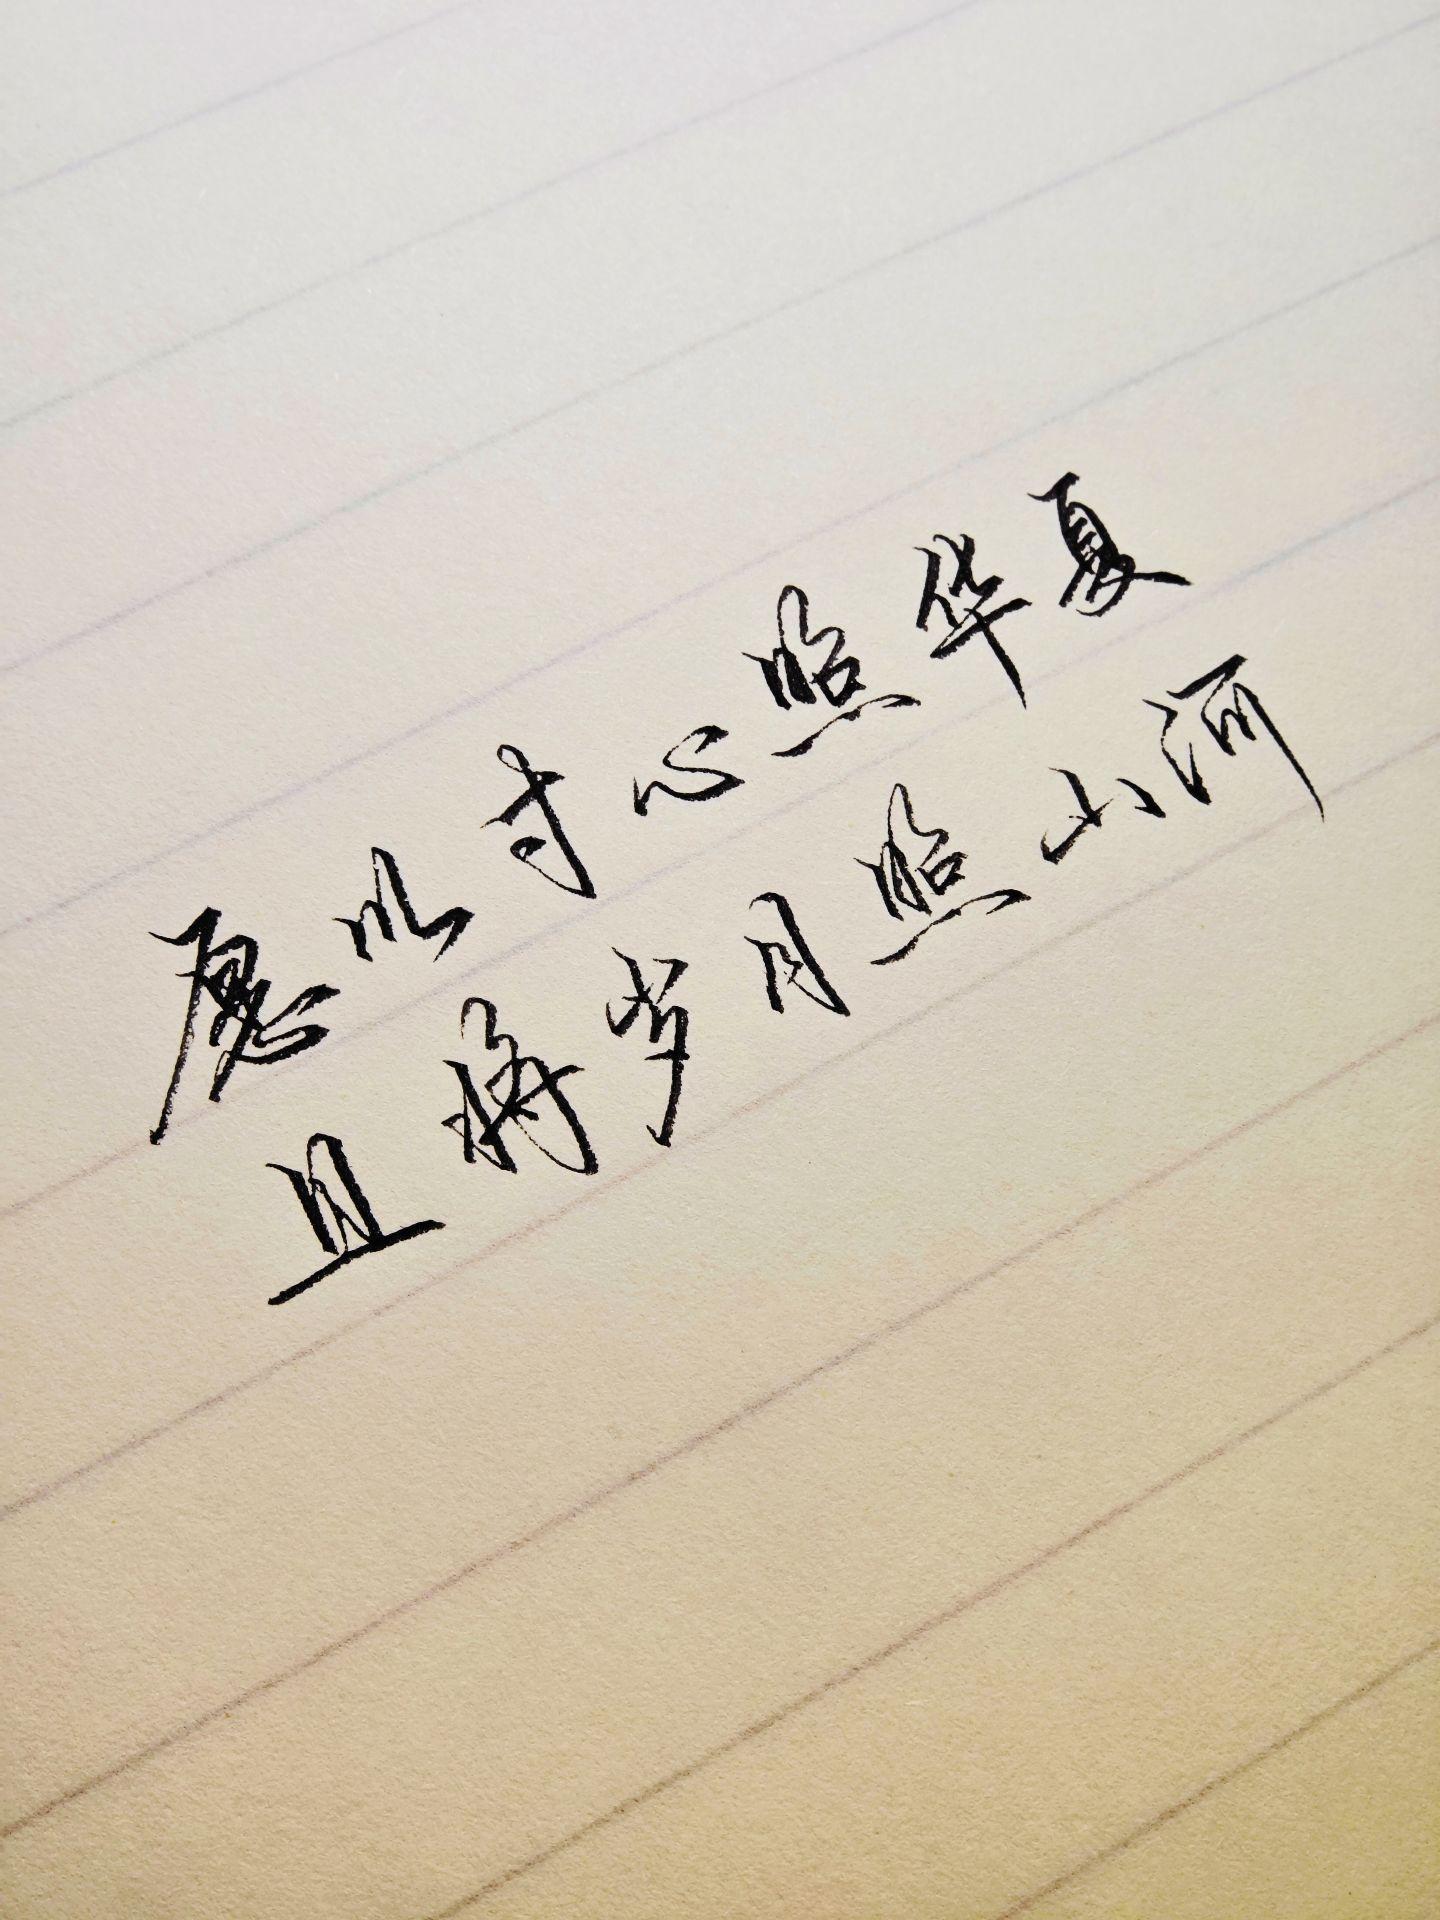 愿以寸心照华夏
且将岁月照山河